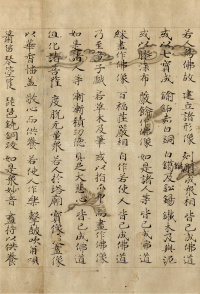 若人為佛故 建立諸形像 刻彫成衆相 皆已成佛道
或以七寶成 鍮石赤白銅 白鑞及鉛錫 鐵木及與泥
或以膠漆布 嚴飾作佛像 如是諸人等 皆已成佛道
綵畫作佛像 百福莊嚴相 自作若使人 皆已成佛道
乃至童子戲 若草木及筆 或以指爪甲 而畫作佛像
如是諸人等 漸漸積功德 具足大悲心 皆已成佛道
但化諸菩薩 度脫無量衆 若人於塔廟 寶像及畫像
以華香幡蓋 敬心而供養 若使人作樂 擊鼓吹角貝
簫笛琴箜篌 琵琶鐃銅鈸 如是衆妙音 盡持以供養